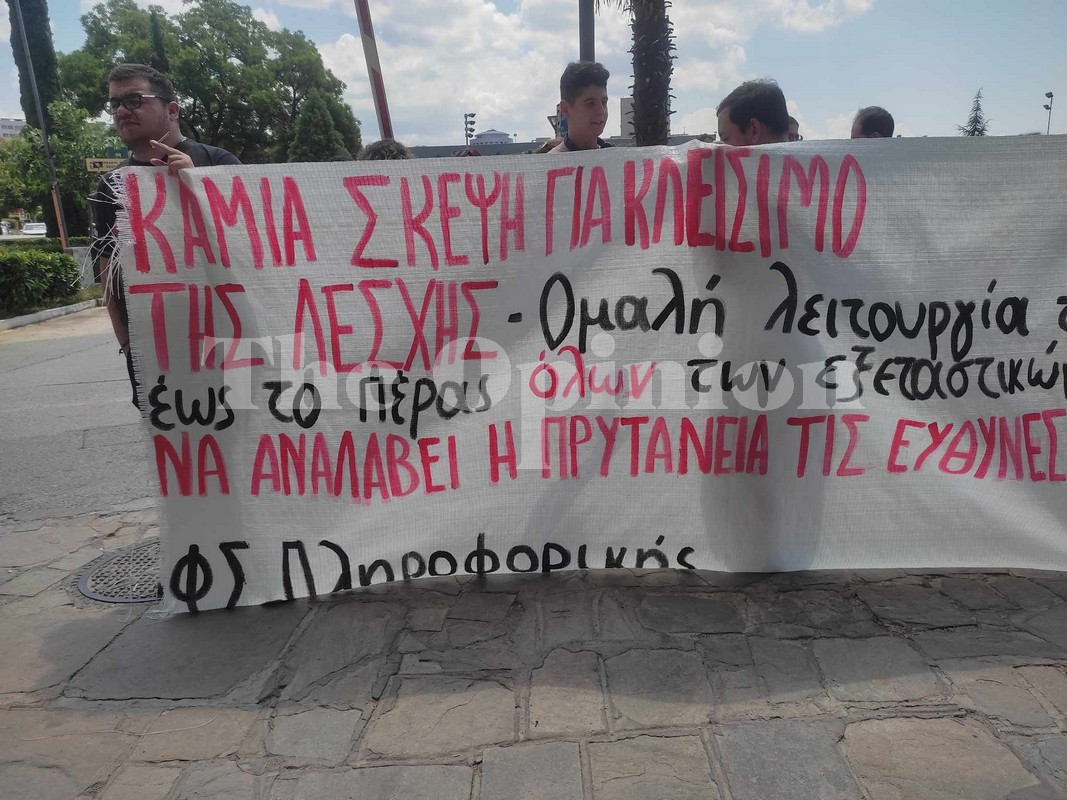 ΚΑΜΙΑ ΣΚΕΨΗ ΓΙΑ ΚΛΕΙΣΙΜΟ
ΤΗΣ ΛΕΣΧΗΣ - Ομαλή λειτουργία τ
έως το πέρας όλων των εξεταστικών
ΝΑ ΑΝΑΛΑΒΕΙ Η ΠΡΥΤΑΝΕΙΑ ΤΙΣ ΕΥΘΥΝΕΣ
ΦΣ Πληροφορικής
The Opinion